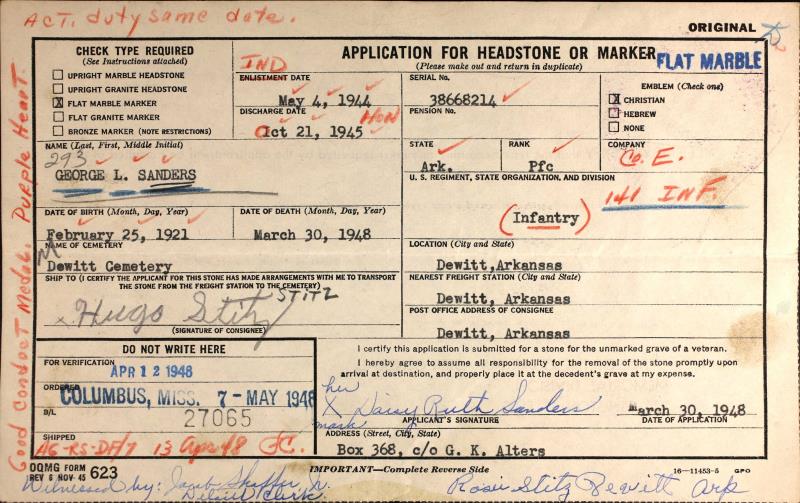 ACT. duty same date.
ORIGINAL
CHECK TYPE REQUIRED
(See Instructions attached)
UPRIGHT MARBLE HEADSTONE
UPRIGHT GRANITE HEADSTONE
X FLAT MARBLE MARKER
FLAT GRANITE MARKER
BRONZE MARKER (NOTE RESTRICTIONS)
IND
ENLISTMENT DATE
May 4, 1944
DISCHARGE DATE
HON
Oct 21, 1945
APPLICATION FOR HEADSTONE OR MARKER
(Please make out and return in duplicate)
FLAT MARBLE
SERIAL No.
38668214
PENSION No.
EMBLEM (Check one)
X CHRISTIAN
HEBREW
NONE
NAME (Last, First, Middle Initial)
293
GEORGE L. SANDERS
STATE
Ark.
RANK
Pfc
COMPANY
Co. E.
U. S. REGIMENT, STATE ORGANIZATION, AND DIVISION
141 INF.
(Infantry)
DATE OF BIRTH (Month, Day, Year)
February 25, 1921
DATE OF DEATH (Month, Day, Year)
March 30, 1948
NAME OF CEMETERY
Dewitt Cemetery
LOCATION (City and State)
Dewitt, Arkansas
SHIP TO (I CERTIFY THE APPLICANT FOR THIS STONE HAS MADE ARRANGEMENTS WITH ME TO TRANSPORT
THE STONE FROM THE FREIGHT STATION TO THE CEMETERY)
STITZ
x Hugo Stitz
(SIGNATURE OF CONSIGNEE)
NEAREST FREIGHT STATION (City and State)
Dewitt, Arkansas
POST OFFICE ADDRESS OF CONSIGNEE
Dewitt, Arkansas
DO NOT WRITE HERE
FOR VERIFICATION
APR 12 1948
ORDERED
COLUMBUS, MISS. 7 - MAY 1948
B/L
27065
SHIPPED
13 Apr 48
I certify this application is submitted for a stone for the unmarked grave of a veteran.
I hereby agree to assume all responsibility for the removal of the stone promptly upon
arrival at destination, and properly place it at the decedent's grave at my expense.
her
X Daisy Ruth Sanders
mark
APPLICANT'S SIGNATURE
March 30, 1948
DATE OF APPLICATION
ADDRESS (Street, City, State)
Box 368, c/o G. K. Alters
OQMG FORM
REV 6 NOV 45 623
IMPORTANT—Complete Reverse Side
16—11453-5 GPO
Witnessed by:
Rosie Stitz Dewitt Ark
Good Conduct Medal. Purple Heart.